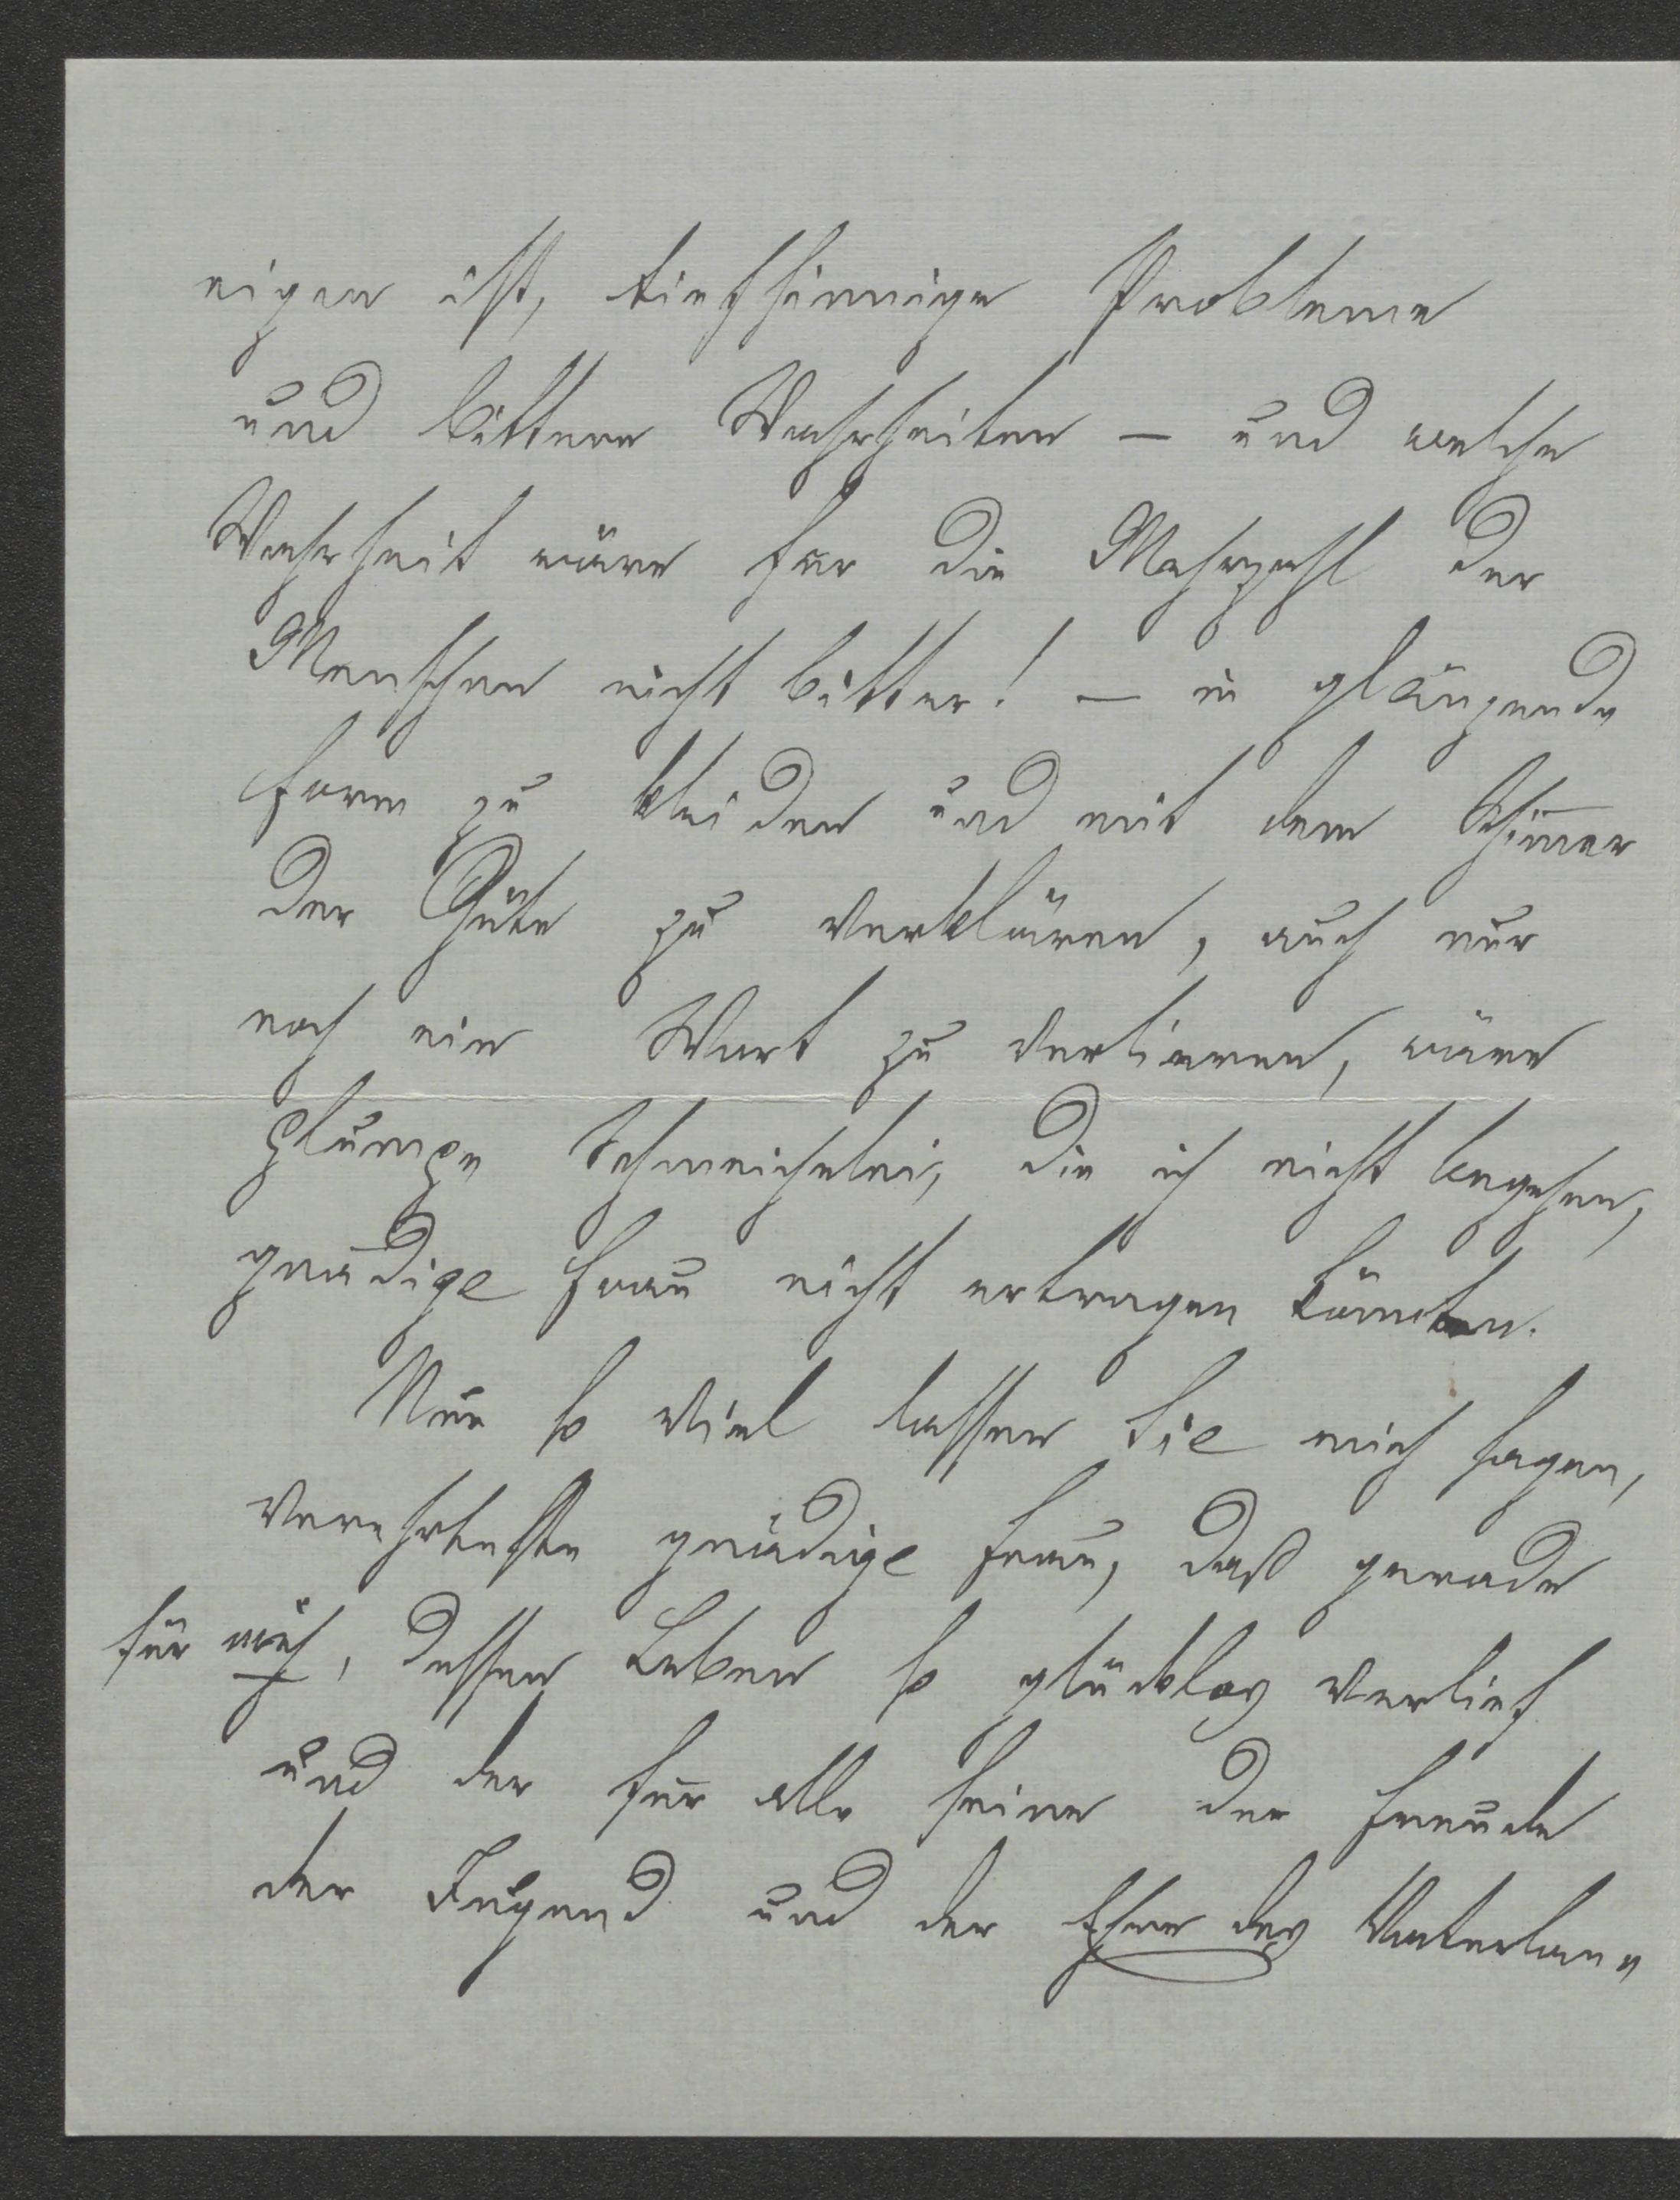 eigen ist, tiefsinnige Probleme
und bittere Wahrheiten – und welche
Wahrheit wäre für die Mehrzahl der
Menschen nicht bitter! – in glänzende
Form zu kleiden und mit dem Schim̅er
der Güte zu verklären, auch nur
noch ein Wort zu verlieren, wäre
plumpe Schmeichelei, die ich nicht begehen,
gnädige Frau nicht ertragen könnten.
Nur so viel lassen Sie mich sagen,
verehrteste gnädige Frau, daß gerade
für mich, dessen Leben so glücklos verlief
und der für alle seine der Freude
der Jugend und der Ehre des Vaterlan„